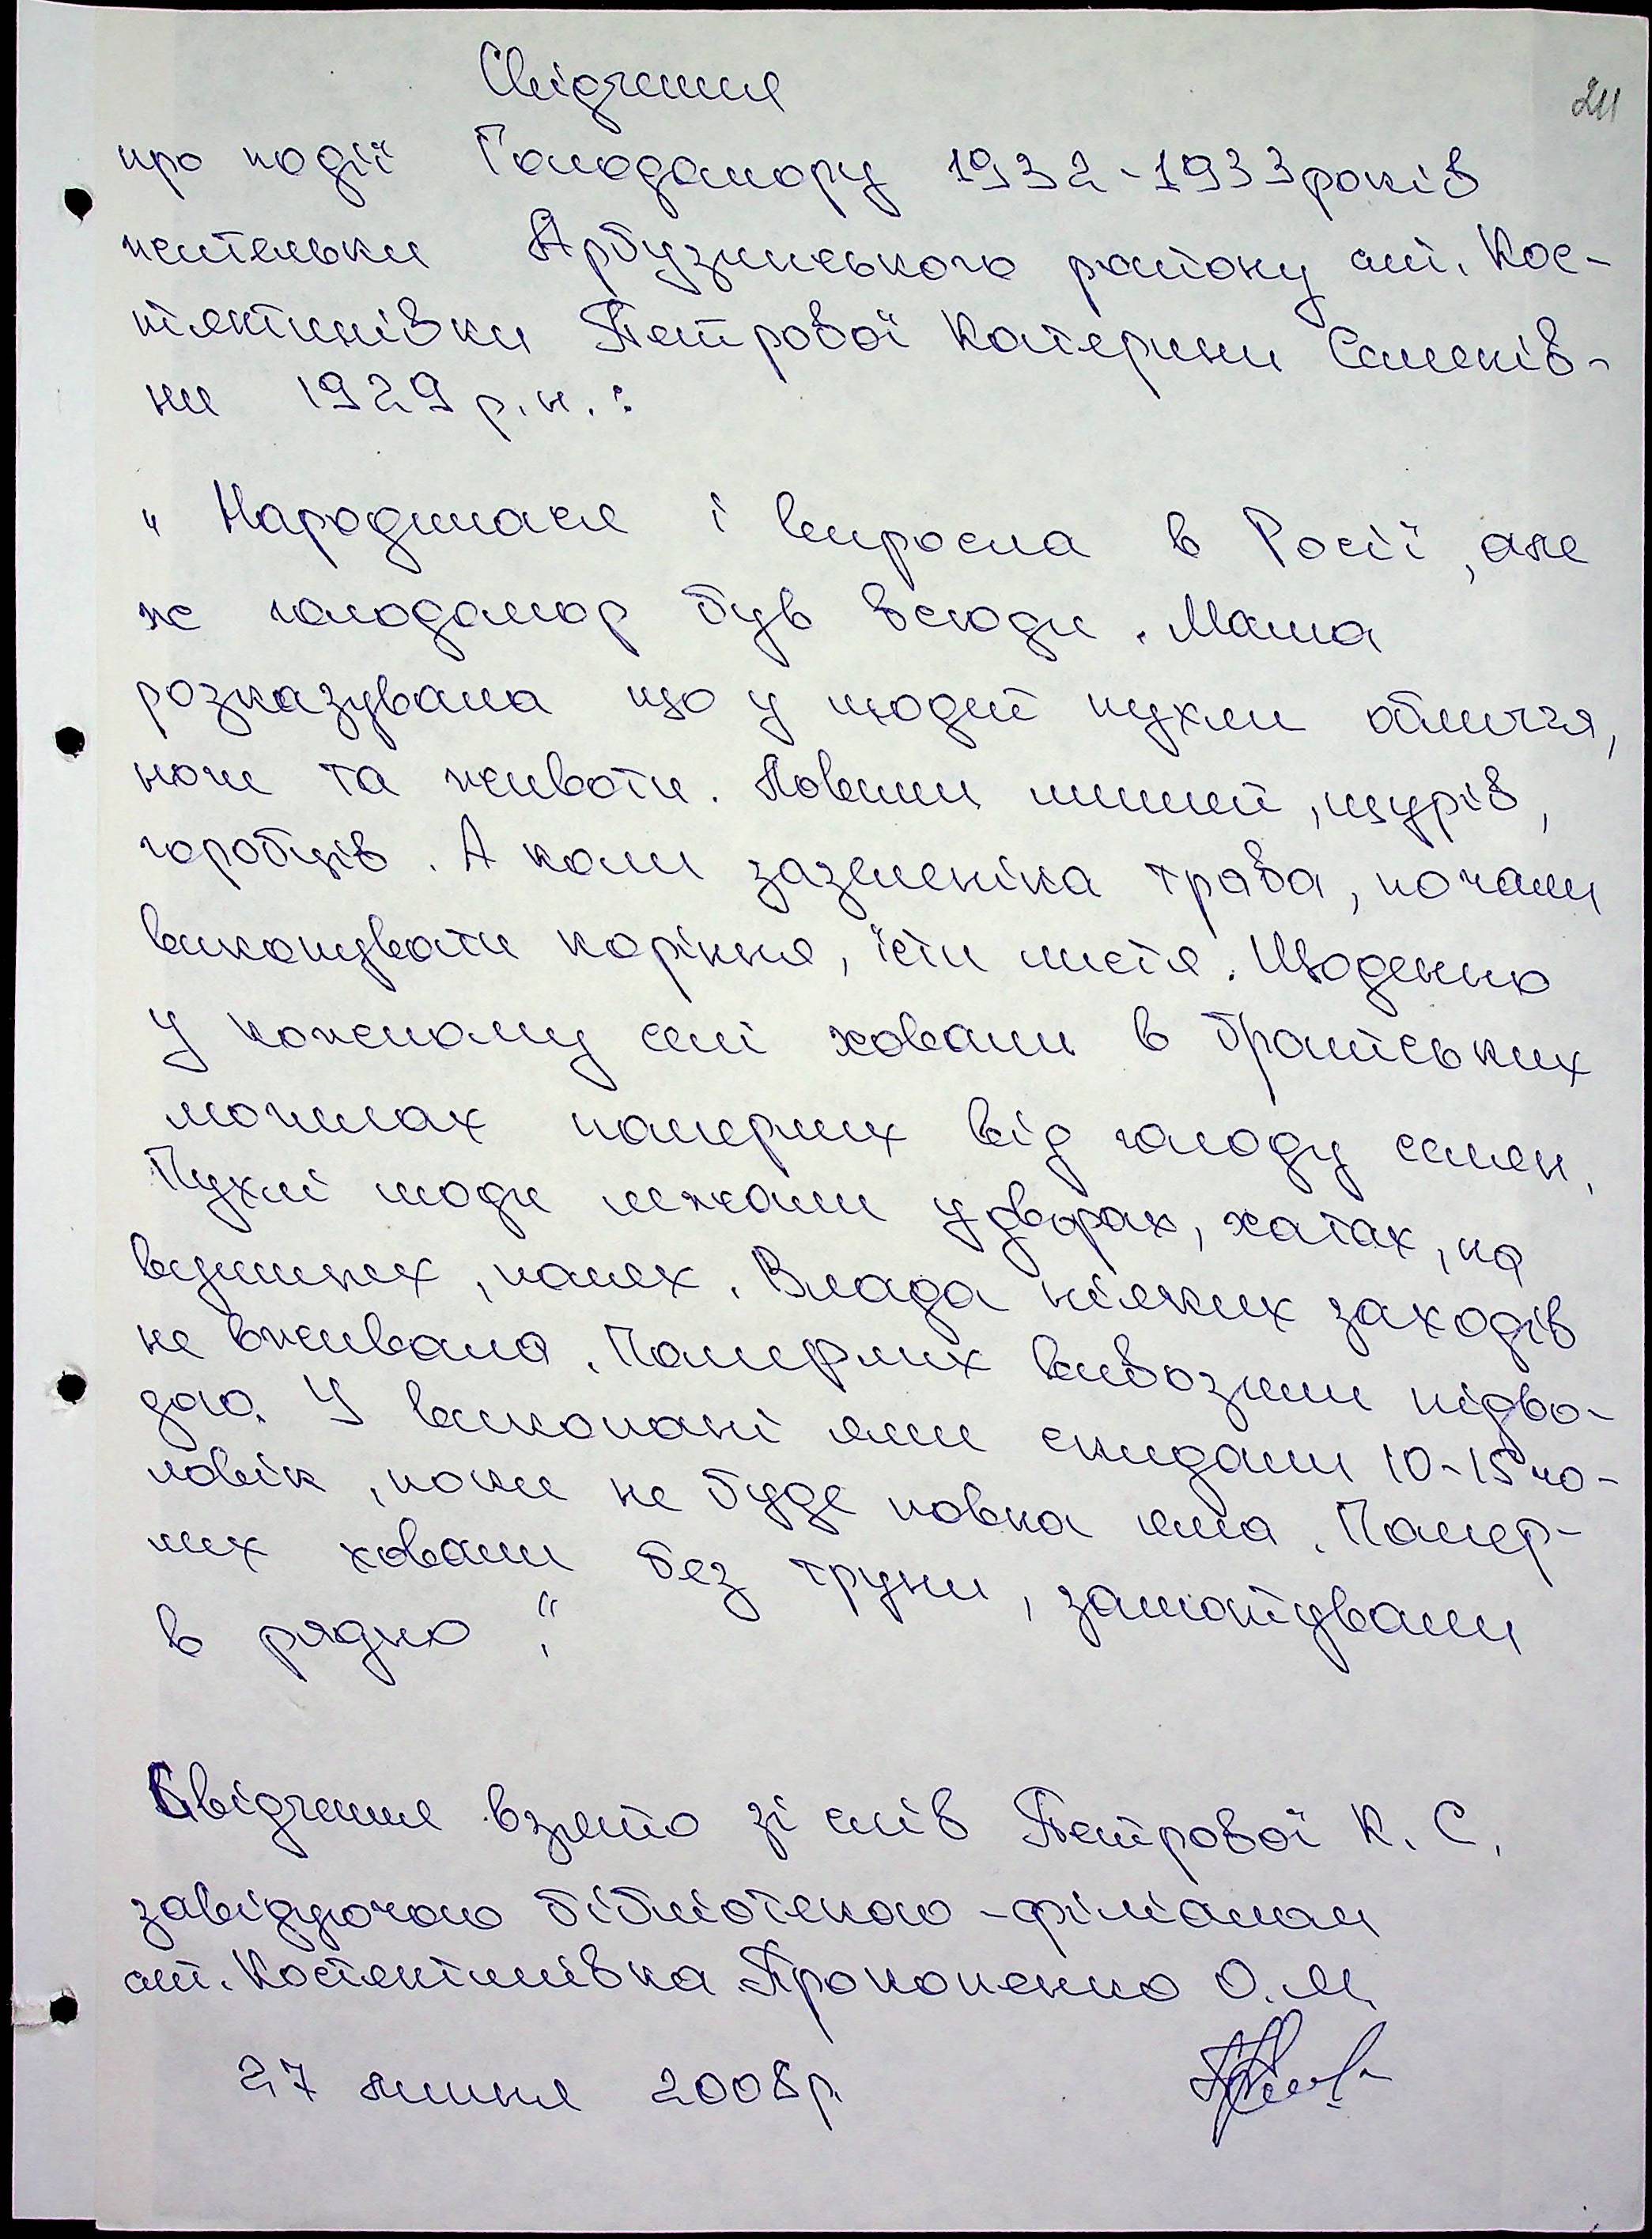 Свідчення
211
про події Голодомору 1932-1933 років
жительки Арбузинського району смт. Кос-
тянтинівки Петрової Катерини Семенів-
ни 1929 р.н.:
" Народилася і виросла в Росії, але
ж голодомор був всюди. Мама
розказувала що у людей пухли обличчя,
ноги та животи. Ловили мишей, щурів,
горобців. А коли зазеленіла трава, почали
викопувати коріння, їсти листя. Щоденно
у кожному селі ховали в братських
могилах померлих від голоду селян.
Пухлі люди лежали у дворах, хатах, на
вулицях, полях. Влада ніяких заходів
не вживала. Померлих вивозили підво-
дою. У викопані ями скидали 10-15 чо-
ловік, поки не буде повна яма. Помер-
лих ховали без труни, замотували
в рядно."
Свідчення взято зі слів Петрової К. С.
завідуючою бібліотекою-філіалом
смт. Костянтинівка Прокопенко О.М.
27 липня 2008р.